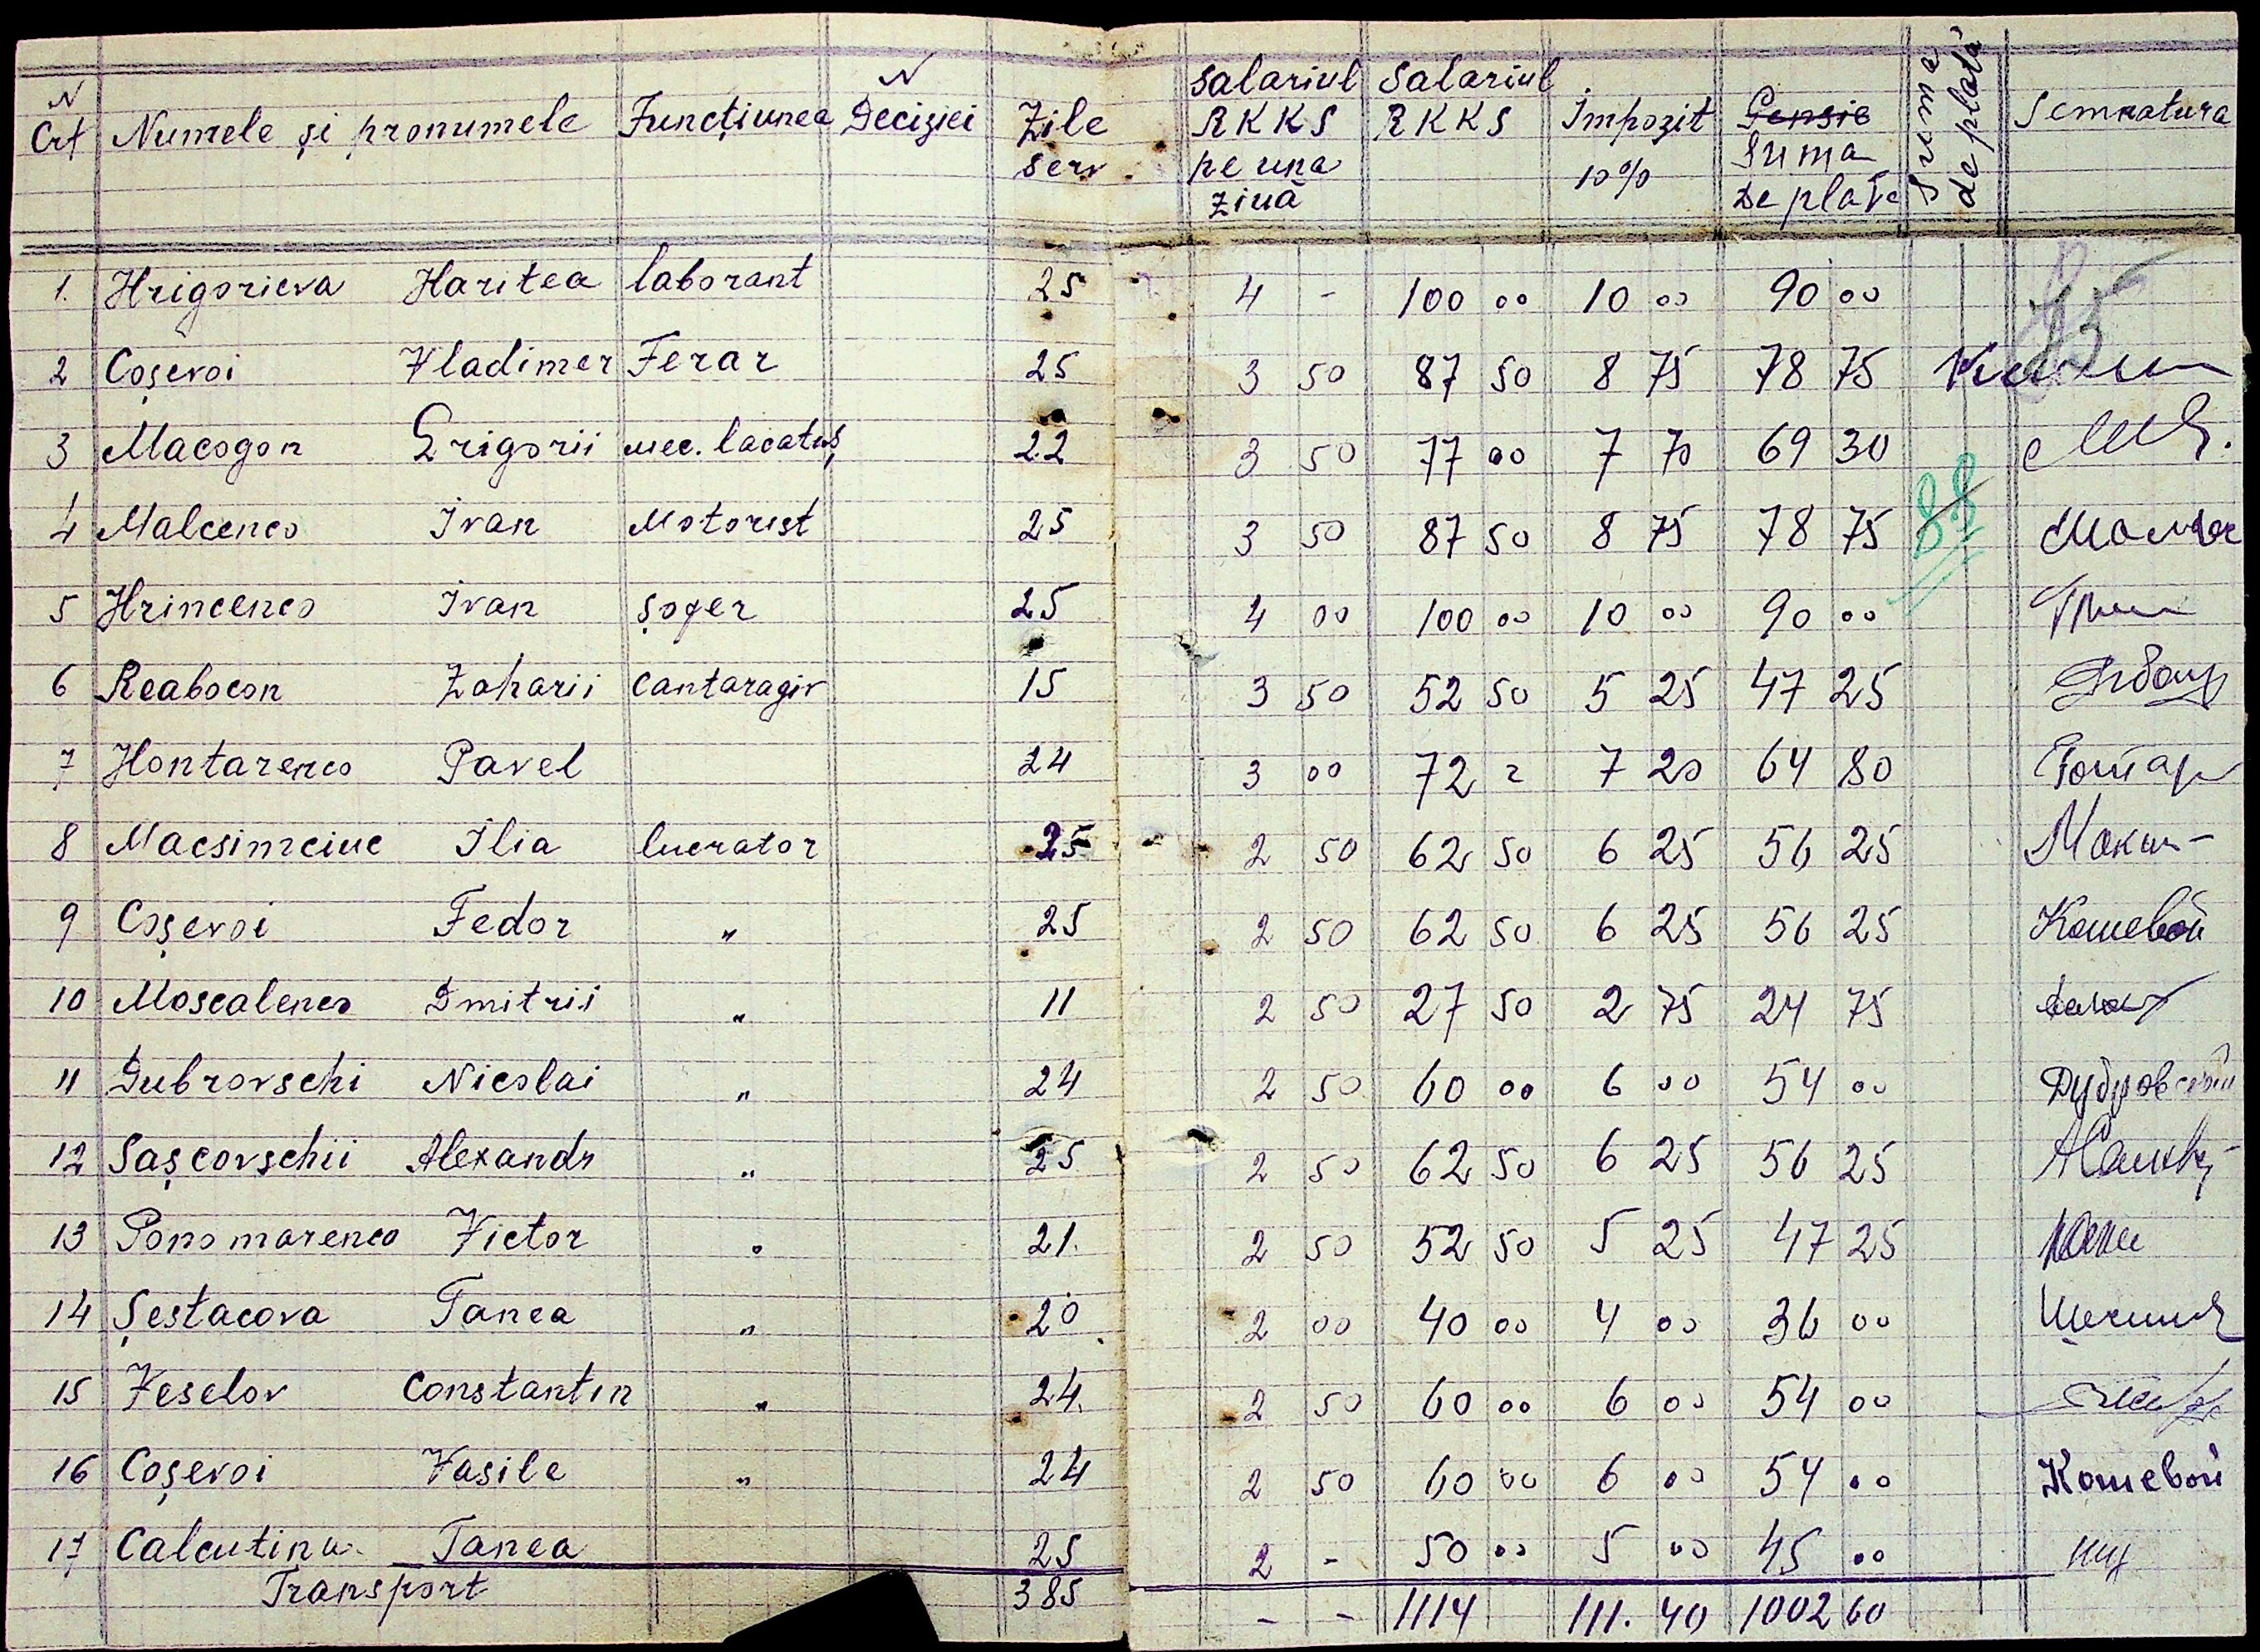 N Crt Numele și pronumele Funcțiunea N Deciziei Zile serv Salariul RKKS pe una ziuă Salariul RKKS Impozit 10% Pensie Suma de plată Suma de plată Semnatura
1. Hrigorieva Haritea laborant 25 4 - 100 00 10 00 90 00
2 Coșevoi Vladimer Ferar 25 3 50 87 50 8 75 78 75
3 Macogon Grigorii mec. lacatuș 22 3 50 77 00 7 70 69 30
4 Malcenco Ivan Motorist 25 3 50 87 50 8 75 78 75
5 Hrincenco Ivan șofer 25 4 00 100 00 10 00 90 00
6 Reabocon Zaharii Cantaragiv 15 3 50 52 50 5 25 47 25
7 Hontarenco Pavel 24 3 00 72 7 20 64 80 Гонтар
8 Macsimciuc Ilia lucrator 25 2 50 62 50 6 25 56 25
9 Coșevoi Fedor " 25 2 50 62 50 6 25 56 25 Кошевой
10 Moscalenco Dmitrii " 11 2 50 27 50 2 75 24 75
11 Dubrovschi Nicolai " 24 2 50 60 00 6 00 54 00 Дубровский
12 Sașcovschii Alexandr " 25 2 50 62 50 6 25 56 25
13 Ponomarenco Victor " 21. 2 50 52 50 5 25 47 25
14 Șestacova Tanea " 20 2 00 40 00 4 00 36 00
15 Veselov Constantin " 24. 2 50 60 00 6 00 54 00
16 Coșevoi Vasile " 24 2 50 60 00 6 00 54 00 Кошевой
17 Calcutina Tanea 25 2 - 50 00 5 00 45 00
Transport 385 - - 1114 111. 40 1002 60